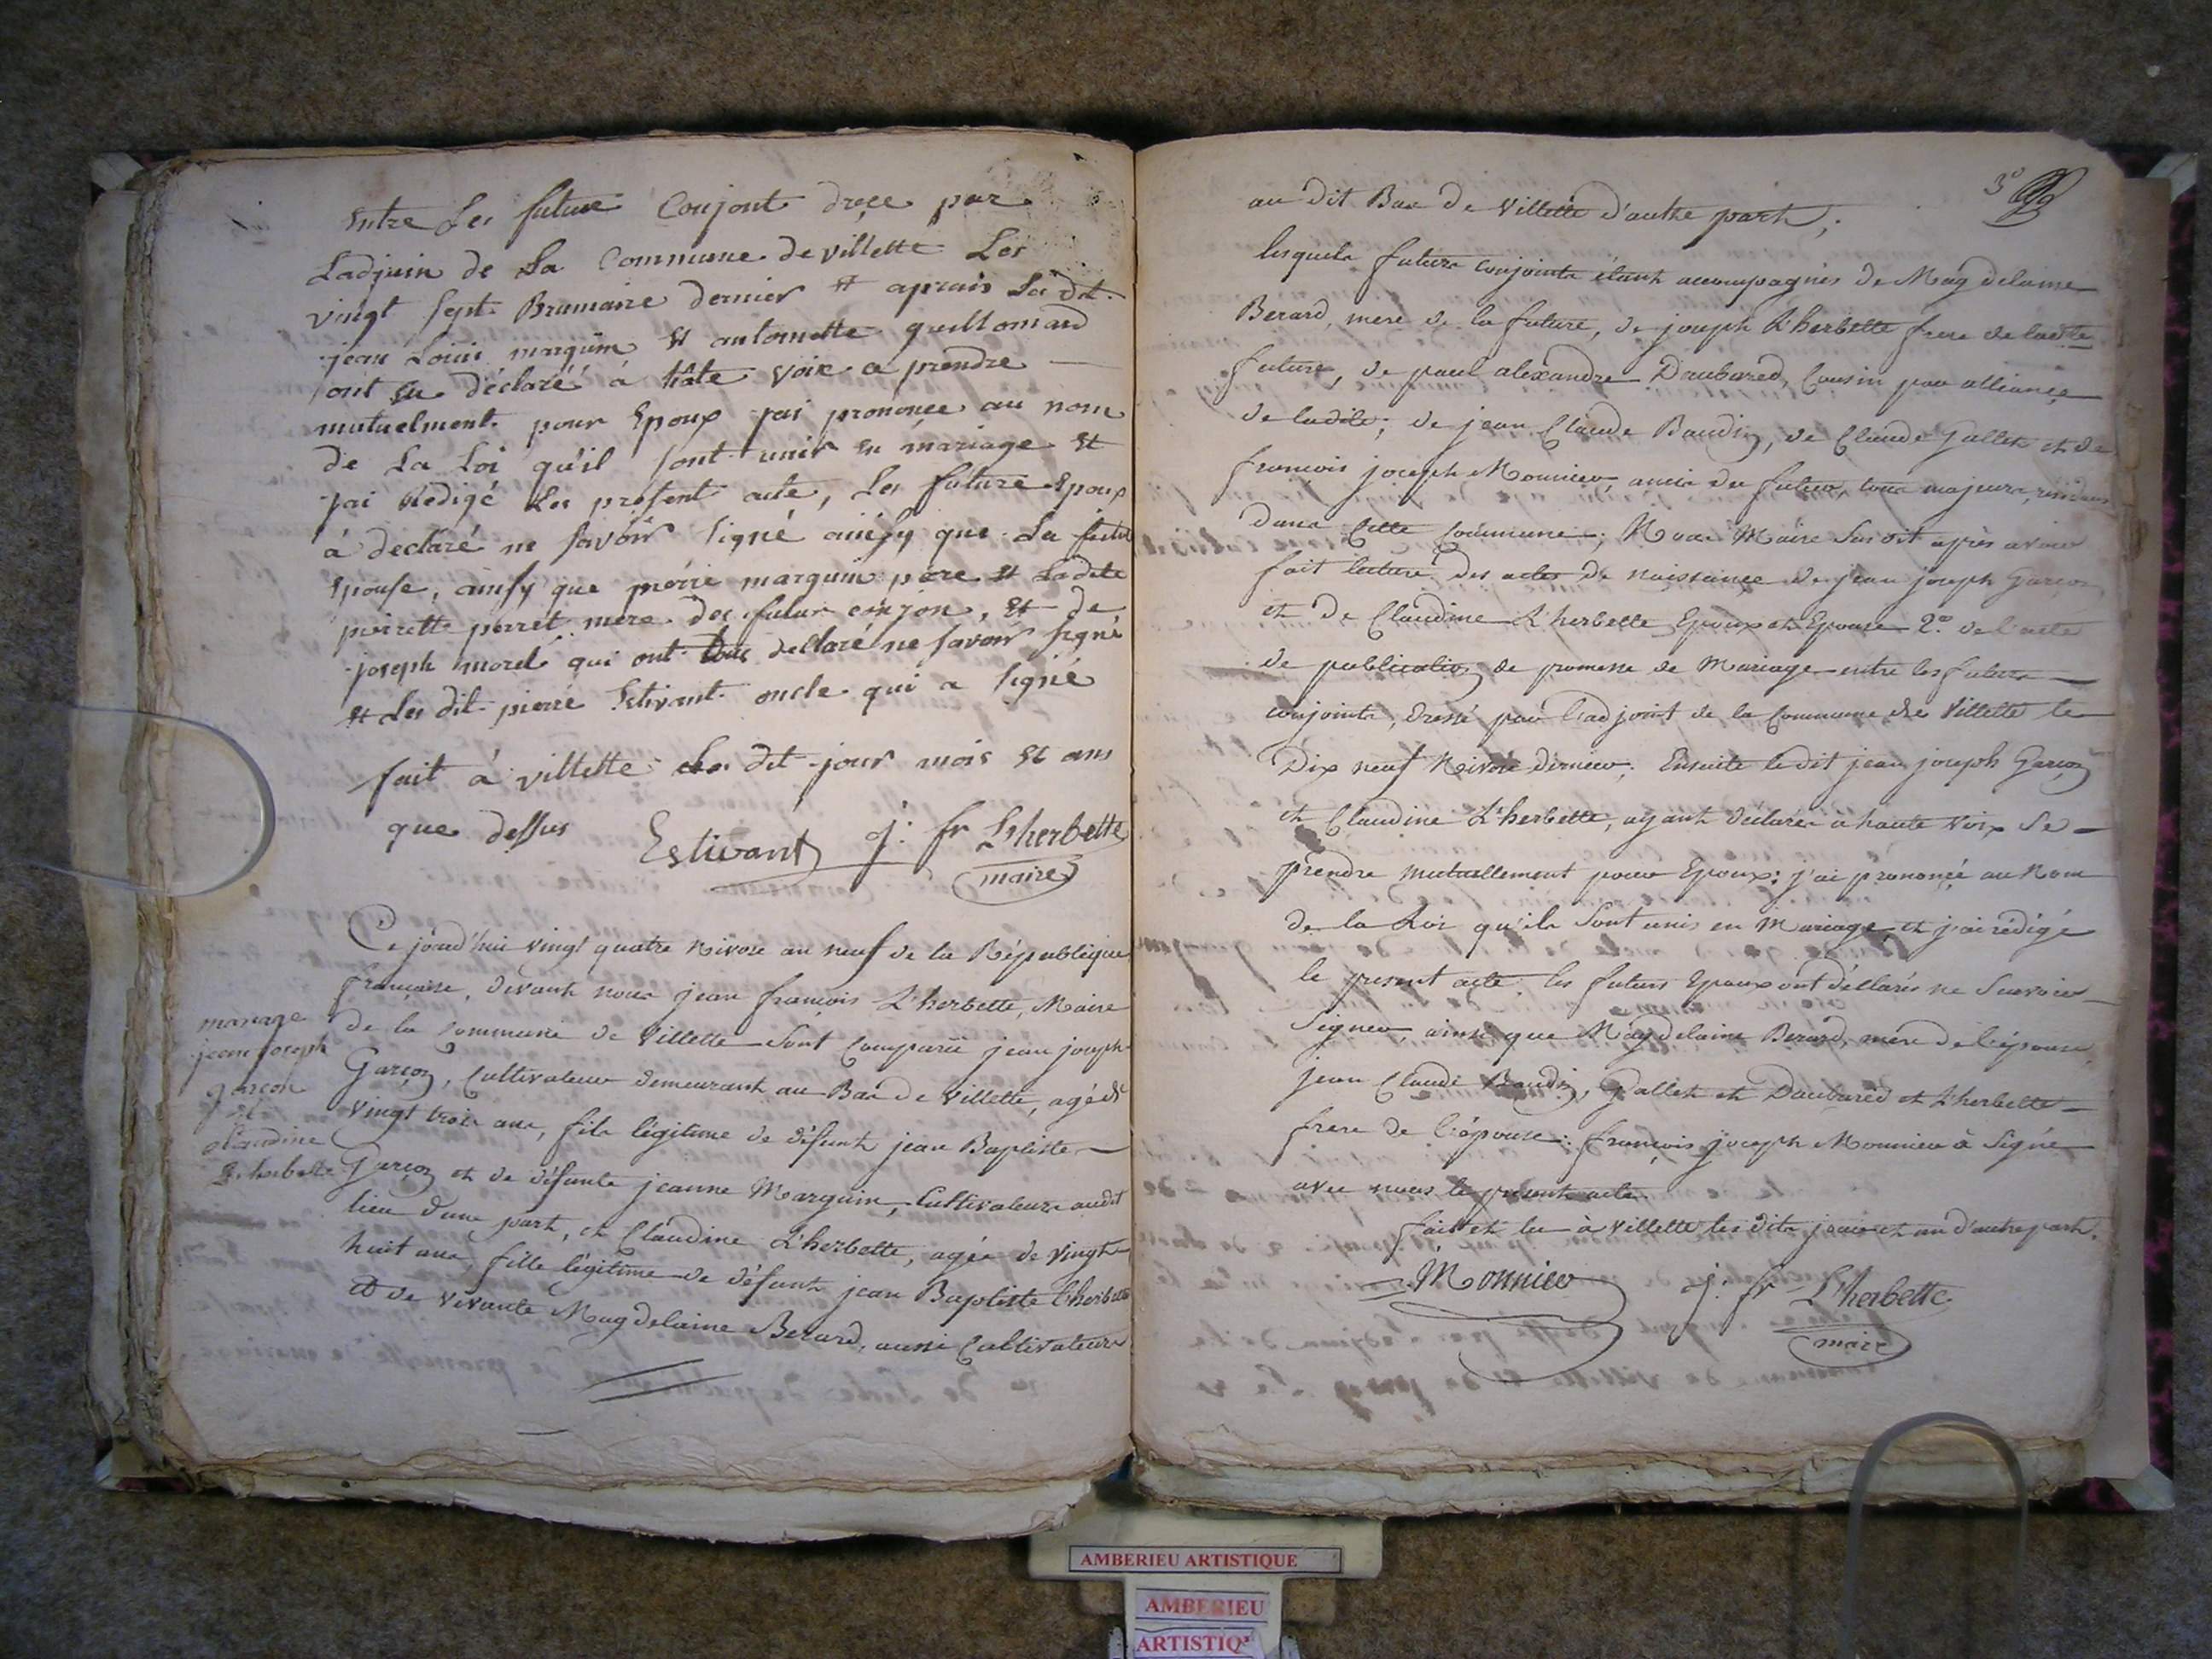 Entre Les future Conjont drece par
Ladjuin de La Commune de villette Les
vingt sept Brumaire dernier et aprais La dit
jean Loüis marguin et antoinette guillomard
ont eu déclaré à hâte voix ce prendre
mutuelment pour Epoux jai prononcé au nom
de La Loi qu'il sont unir en mariage et
jai Redigé Les present acte, Les future Epoux
à declaré ne savoir signé ainsy que La future
Epouse, ainsy que pierre marguin père et Ladite
perrette perret mere des futur conjon, et de
joseph morel qui ont tous dellaré ne savoir signé
et Les dit pierre Estivant oncle qui a signé
fait à villette Les dit jour mois et ans
que dessus
Estivant j: fr Lherbette
maire
Ce jourd'hui vingt quatre Nivose an neuf de la République
française, devant nous jean françois L'herbette, Maire
de la Commune de Villette Sont Comparü jean joseph
Garçon, Cultivateur demeurant au Bas de Villette, agé de
Vingt trois ans, fils légitime de défunt jean Baptiste
Garçon et de défunte jeanne Marguin, Cultivateurs audit
lieu d'une part, et Claudine L'herbette, agée de Vingt
huit ans, fille légitime de défunt jean Baptiste l'herbette
et de vivante Magdelaine Berard, aussi Cultivateurs
mariage
jean joseph
garcon
et
claudine
Lherbette
3°
au dit Bas de Villette d'autre part;
lesquels futurs conjoints étant accompagnés de Magdelaine
Berard, mere de la future, de joseph L'herbette frere de ladte
future, de paul alexandre Daubared, Cousin par alliance
de ladite; de jean Claude Baudin, de Claude Gallet et de
françois joseph Monnier, amis du futur, tous majeurs, residans
dans Cette Commune; Nous Maire Susdit après avoir
fait lecture des actes de naissance de jean joseph Garçon
et de Claudine L'herbette Epoux et Epouse 2.° de l'acte
de publication de promesse de Mariage entre les futurs
conjoints, dressé par l'adjoint de la Commune de Villette le
Dix neuf Nivose dernier; Ensuite le dit jean joseph Garçon
et Claudine L'herbette, ayant déclarés à haute Voix Se
prendre mutuellement pour Epoux: j'ai prononcé au Nom
de la Loi qu'ils Sont unis en Mariage, et j'ai rédigé
le present acte. les futurs Epoux ont déllarés ne Scavoir
Signer, ainsi que Magdelaine Berard, mère de l'épouse,
jean Claude Baudin, Gallet et Daubared et L'herbette
frere de l'épouse: françois joseph Monnier à Signé
avec nous le présent acte.
fait et lu à Villette les dits jour et an d'autre part.
Monnier j: fr L'herbette
maire
AMBERIEU ARTISTIQUE
AMBERIEU
ARTISTIQ